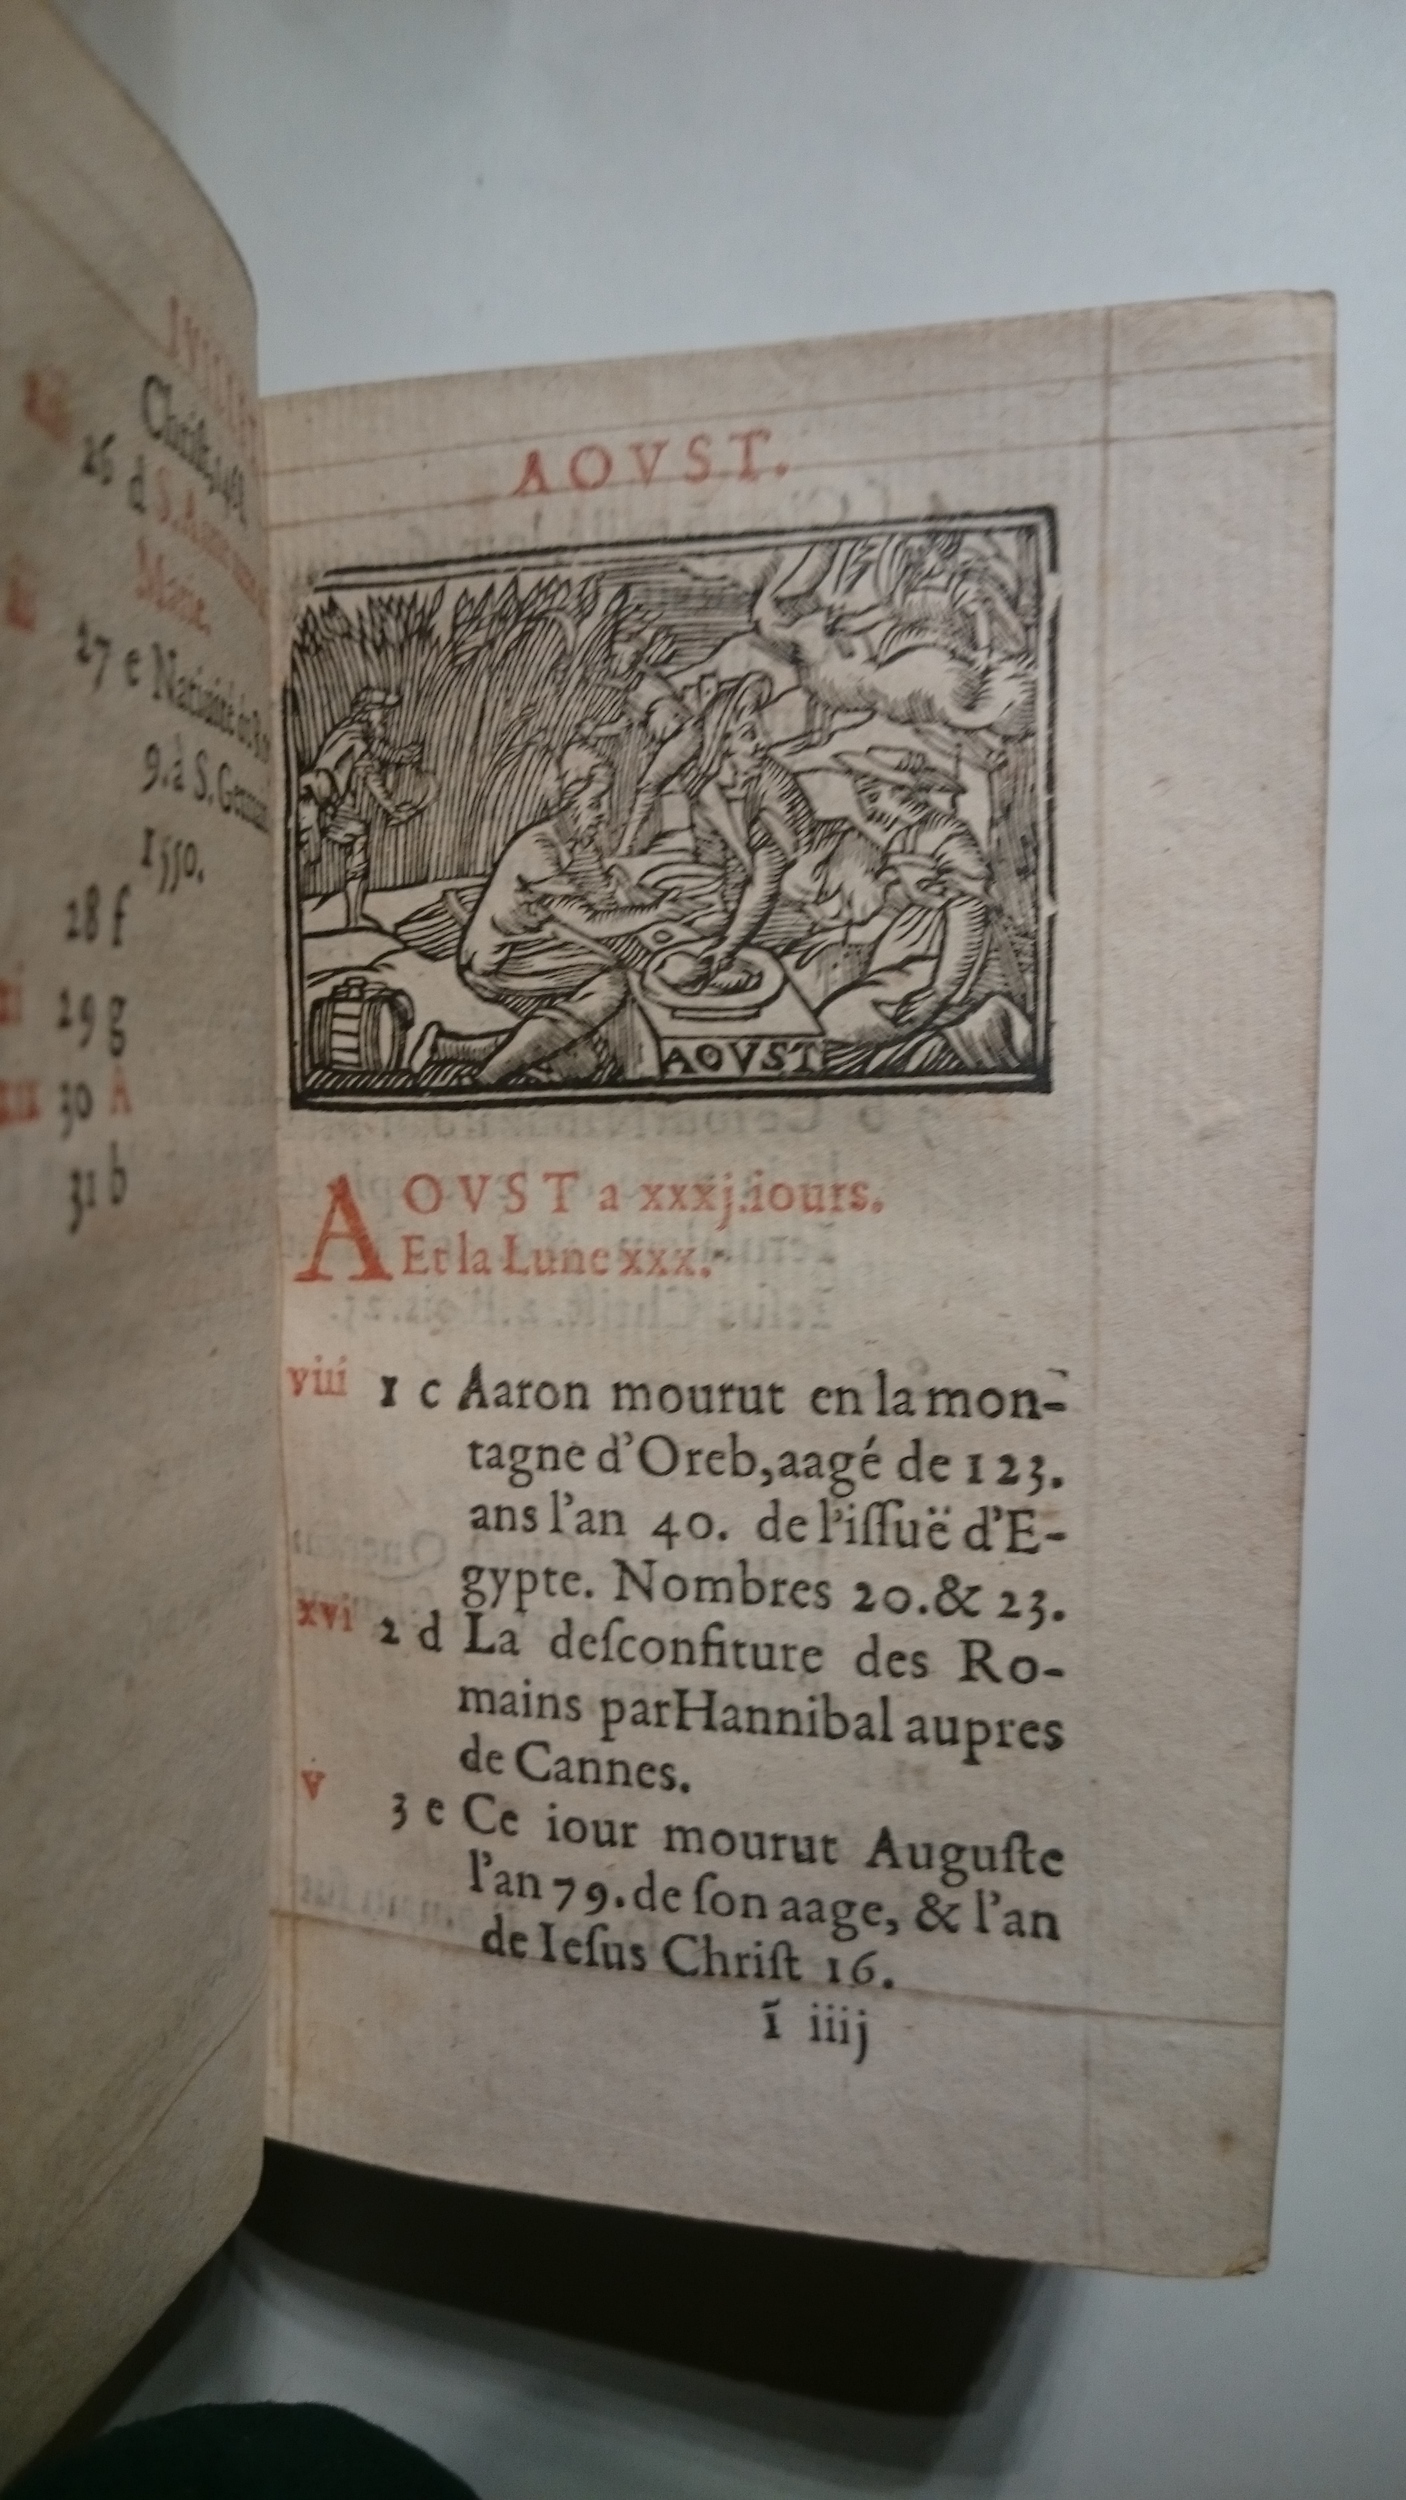 Chriſt,
26 d S. Anne
27 e Natiuité
9.à S. Germ
1550.
28 f
29 g
30 A
31 b
AOVST.
AOVST
AOVST a xxxj.iours.
Et la Lune xxx.
viii 1 c Aaron mourut en la mon-
tagne d'Oreb,aagé de 123.
ans l'an 40. de l'iſſuë d'E-
gypte. Nombres 20.& 23.
xvi 2 d La deſconfiture des Ro-
mains par Hannibal aupres
de Cannes.
v 3 e Ce iour mourut Auguſte
l'an 79.de ſon aage, & l'an
de Ieſus Chriſt 16.
ĩ iiij